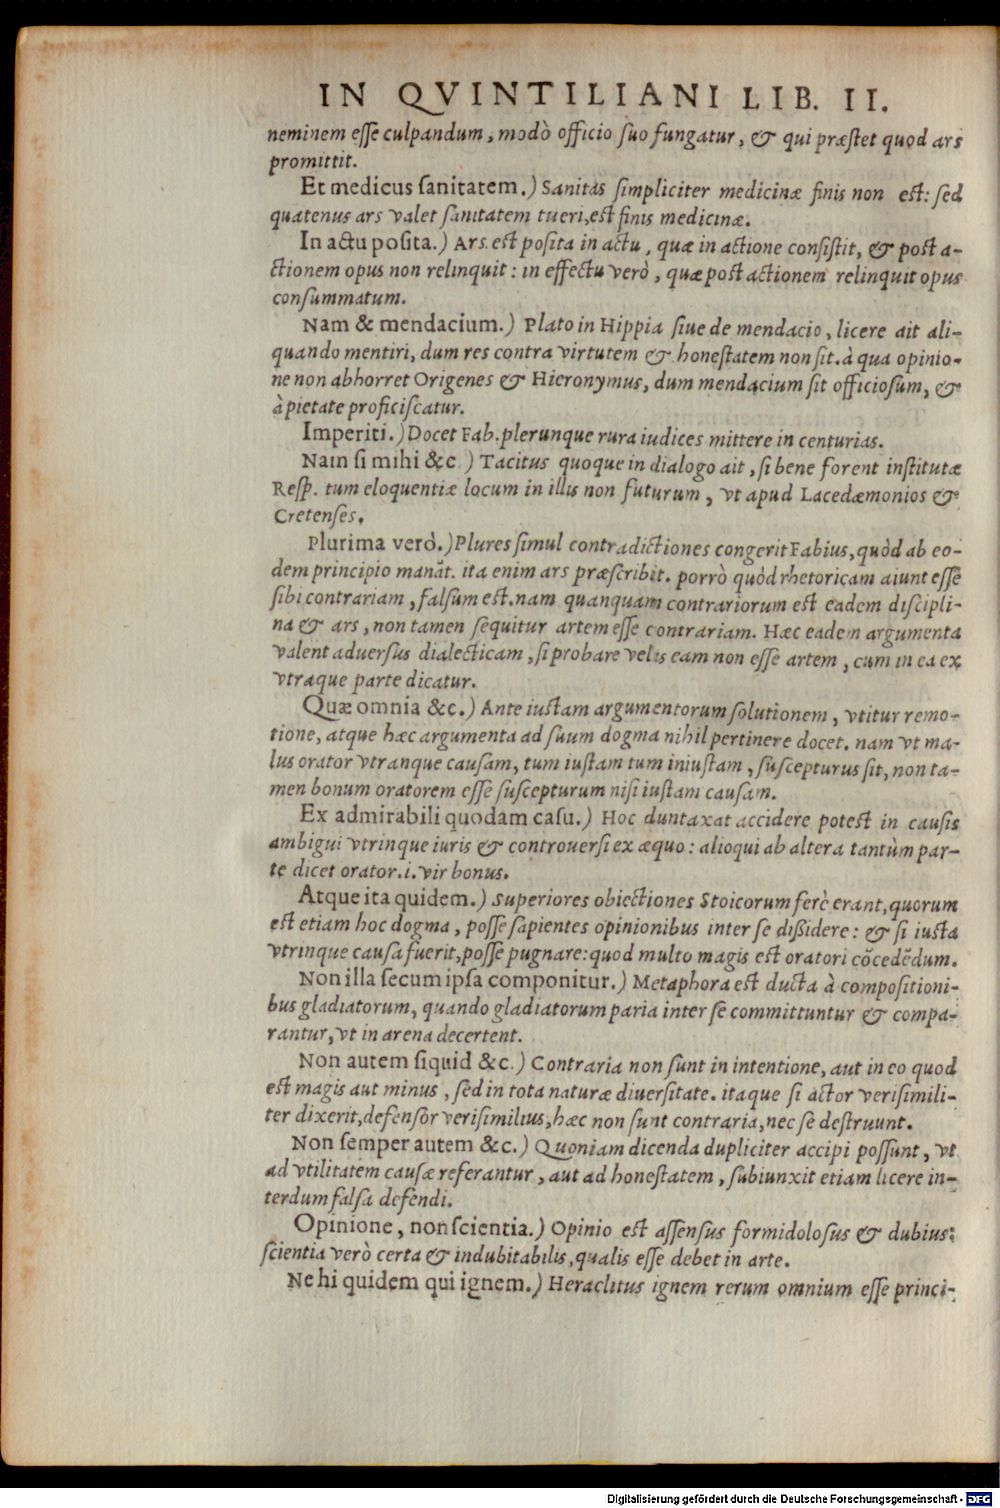 IN QVINTILIANI LIB. II.
neminem esse culpandum, modò officio suo fungatur, & qui præstet quod ars
promittit.
Et medicus sanitatem.) Sanitas simpliciter medicinæ finis non est: sed
quatenus ars valet sanitatem tueri,est finis medicinæ.
In actu posita.) Ars est posita in actu, quæ in actione consistit, & post a-
ctionem opus non relinquit: in effectu verò, quæ post actionem relinquit opus
consummatum.
Nam & mendacium.) Plato in Hippia siue de mendacio, licere ait ali-
quando mentiri, dum res contra virtutem & honestatem non sit. à qua opinio-
ne non abhorret Origenes & Hieronymus, dum mendacium sit officiosum, &
à pietate proficiscatur.
Imperiti.) Docet Fab. plerunque rura iudices mittere in centurias.
Nam si mihi &c.) Tacitus quoque in dialogo ait, si bene forent institutæ
Resp. tum eloquentiæ locum in illis non futurum, vt apud Lacedæmonios &
Cretenses.
Plurima verò.) Plures simul contradictiones congerit Fabius, quòd ab eo-
dem principio manāt. ita enim ars præscribit. porrò quòd rhetoricam aiunt esse
sibi contrariam, falsum est. nam quanquam contrariorum est eadem discipli-
na & ars, non tamen sequitur artem esse contrariam. Hæc eadem argumenta
valent aduersus dialecticam, si probare velis eam non esse artem, cum in ea ex
vtraque parte dicatur.
Quæ omnia &c.) Ante iustam argumentorum solutionem, vtitur remo-
tione, atque hæc argumenta ad suum dogma nihil pertinere docet. nam vt ma-
lus orator vtranque causam, tum iustam tum iniustam, suscepturus sit, non ta-
men bonum oratorem esse suscepturum nisi iustam causam.
Ex admirabili quodam casu.) Hoc duntaxat accidere potest in causis
ambigui vtrinque iuris & controuersi ex æquo: alioqui ab altera tantùm par-
te dicet orator.i.vir bonus.
Atque ita quidem.) Superiores obiectiones Stoicorum ferè erant, quorum
est etiam hoc dogma, posse sapientes opinionibus inter se dißidere: & si iusta
vtrinque causa fuerit, posse pugnare: quod multo magis est oratori cōcedēdum.
Non illa secum ipsa componitur.) Metaphora est ducta à compositioni-
bus gladiatorum, quando gladiatorum paria inter se committuntur & compa-
rantur, vt in arena decertent.
Non autem siquid &c.) Contraria non sunt in intentione, aut in eo quod
est magis aut minus, sed in tota naturæ diuersitate. itaque si actor verisimili-
ter dixerit, defensor verisimilius, hæc non sunt contraria, nec se destruunt.
Non semper autem &c.) Quoniam dicenda dupliciter accipi possunt, vt
ad vtilitatem causæ referantur, aut ad honestatem, subiunxit etiam licere in-
terdum falsa defendi.
Opinione, non scientia.) Opinio est assensus formidolosus & dubius:
scientia verò certa & indubitabilis, qualis esse debet in arte.
Ne hi quidem qui ignem.) Heraclitus ignem rerum omnium esse princi-
Digitalisierung gefördert durch die Deutsche Forschungsgemeinschaft - DFG